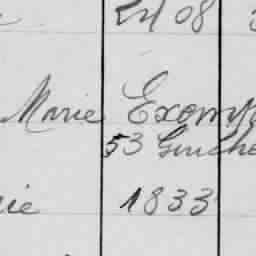 24 08
Marie Exomp
53 Guiche
rie 1833